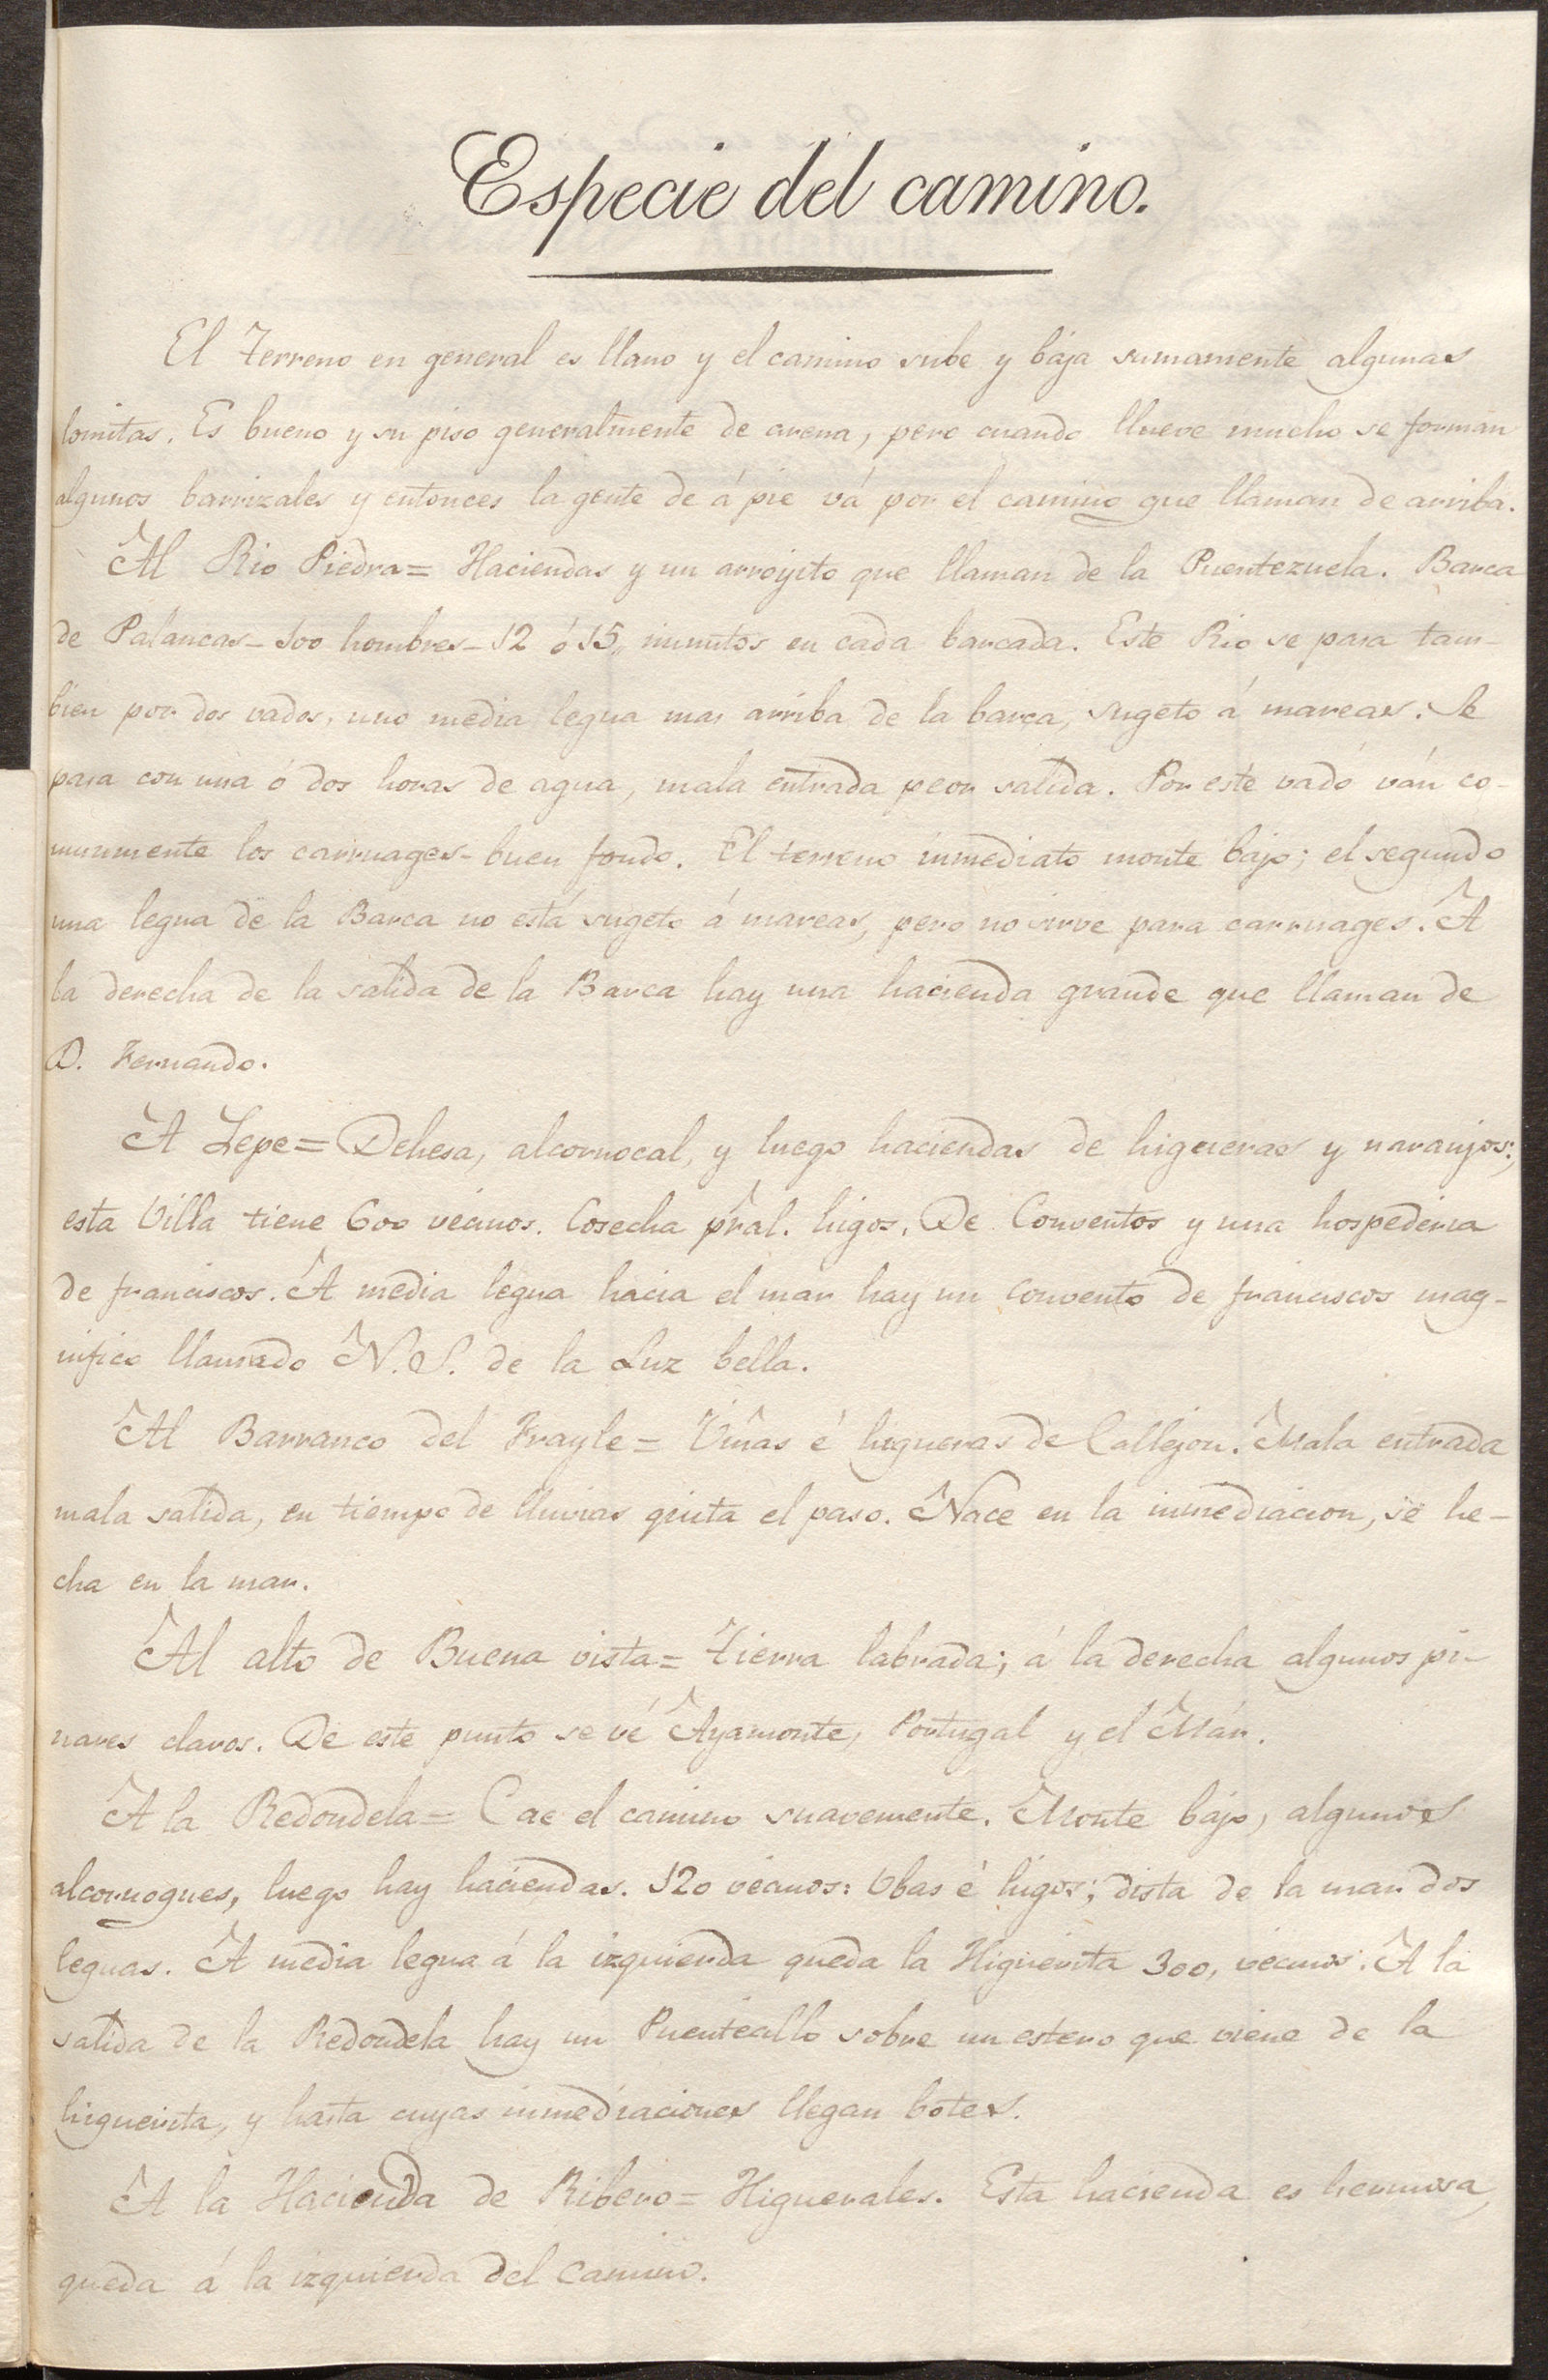 Especie del camino.
El Terreno en general es llano y el camino sube y baja sumamente algunas
lomitas. Es bueno y su piso generalmente de arena, pero cuando llueve mucho se forman
algunos barrizales y entonces la gente de á pie vá por el camino que llaman de arriba.
Al Rio Piedra = Haciendas y un arroyito que llaman de la Puentezuela. Barca
de Palancas - 100 hombres - 12 ó 15,, minutos en cada barcada. Este Rio se pasa tam-
bien por dos vados, uno media legua mas arriba de la barca, sugeto á mareas. Se
pasa con una ó dos horas de agua, mala entrada peor salida. Por este vado ván co-
munmente los carruages - buen fondo. El terreno inmediato monte bajo; el segundo
una legua de la Barca no está sugeto á mareas, pero no sirve para carruages. A
la derecha de la salida de la Barca hay una hacienda grande que llaman de
D. Fernando.
A Lepe = Dehesa, alcornocal, y luego haciendas de higueras y naranjos;
esta Villa tiene 600 vecinos. Cosecha pral. higos. De Conventos y una hospederia
de franciscos. A media legua hacia el mar hay un convento de franciscos mag-
nifico llamado N. S. de la Luz bella.
Al Barranco del Frayle = Viñas é higueras de Callejon. Mala entrada
mala salida, en tiempo de lluvias quita el paso. Nace en la inmediacion, se he-
cha en la mar.
Al alto de Buena vista = Tierra labrada; á la derecha algunos pi-
nares claros. De este punto se vé Ayamonte, Portugal y el Mar.
A la Redondela = Cae el camino suavemente. Monte bajo, algunos
alcornoques, luego hay haciendas. 120 vecinos: Ubas é higos; dista de la mar dos
leguas. A media legua á la izquierda queda la Higuerita 300, vecinos. A la
salida de la Redondela hay un Puentecillo sobre un estero que viene de la
higuerita, y hasta cuyas inmediaciones llegan botes.
A la Hacienda de Ribero = Higuerales. Esta hacienda es hermosa,
queda á la izquierda del camino.